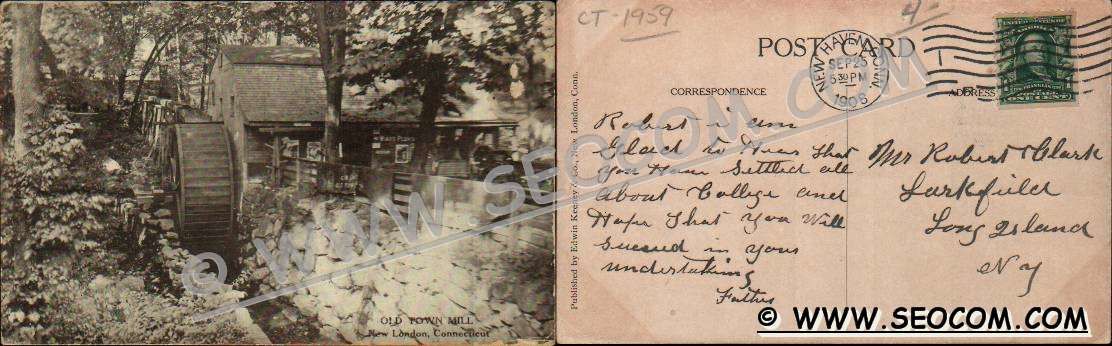 OLD TOWN MILL
New London, Connecticut
© WWW.SEOCOM.COM
CT-1959
4-
POST CARD
NEW HAVEN, CONN.
SEP 25
5 30 PM
1908
CORRESPONDENCE
ADDRESS
Published by Edwin Keeney Co., New London, Conn.
Robert I am
Glacd to Hear that
you Have Settled all
About College and
Hope That you Will
Succeed in your
undertaking
Father
Mr Robert Clark
Larkfield
Long Island
N Y
© WWW.SEOCOM.COM